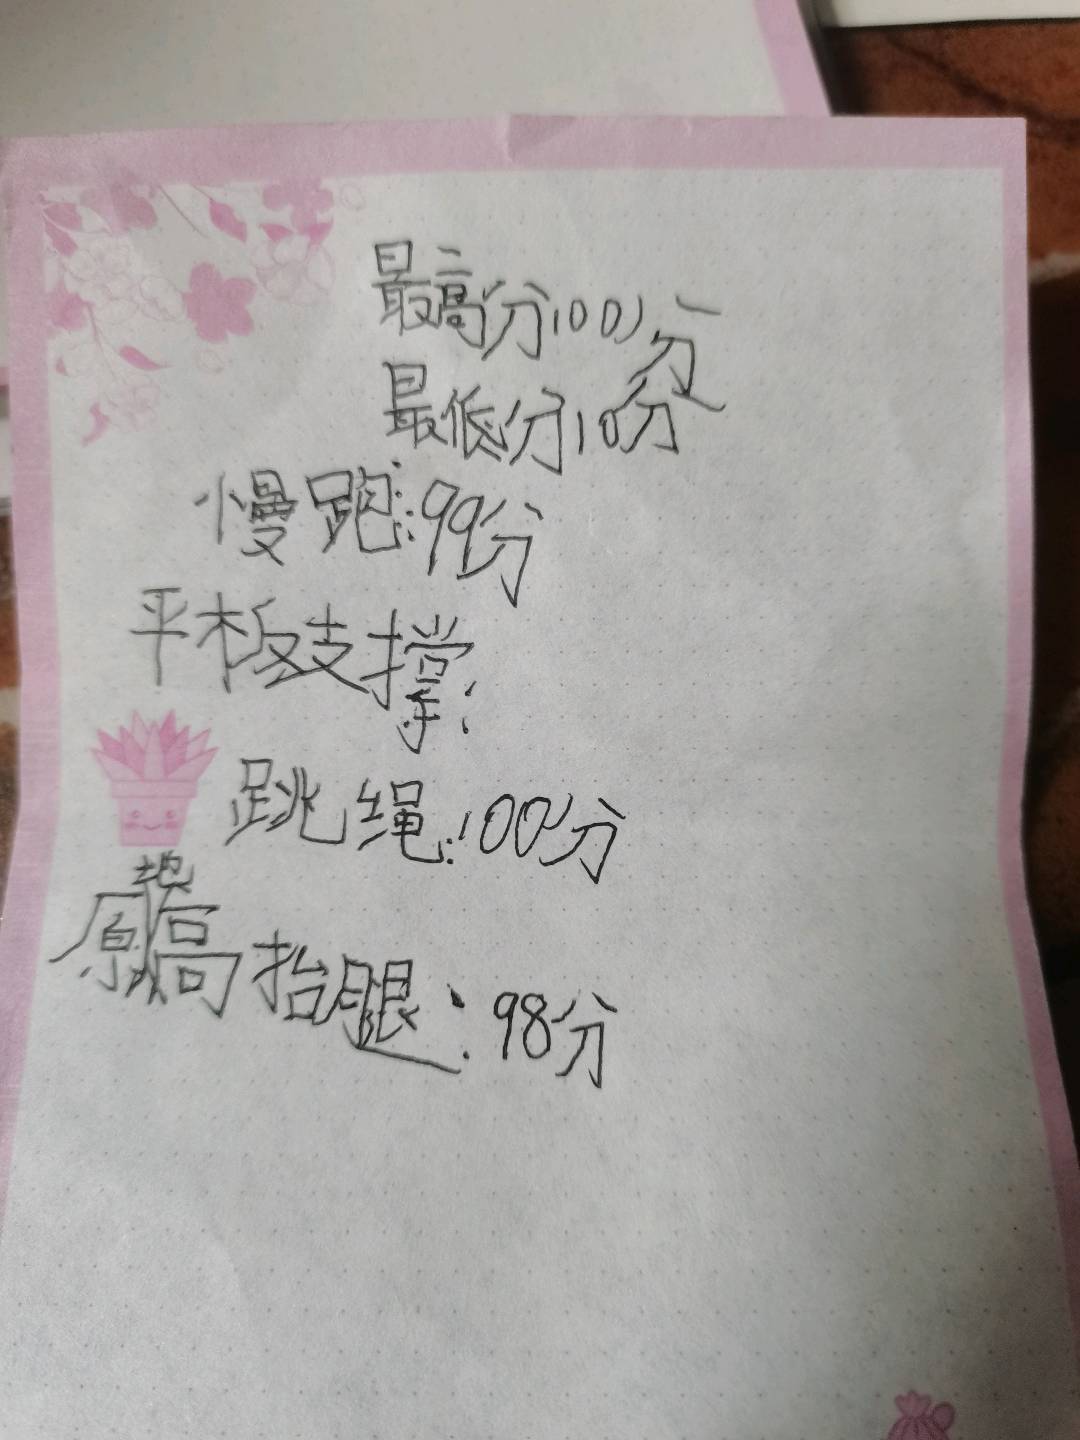 最高分100分
最低分10分
慢跑:99分
平板支撑:
跳绳:100分
原地高抬腿:98分